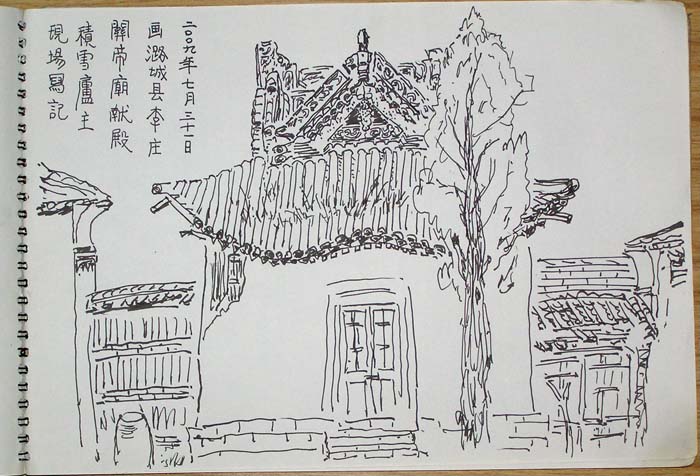 二〇〇九年七月三十一日
画潞城县李庄
關帝廟献殿
積雪廬主
現場寫記